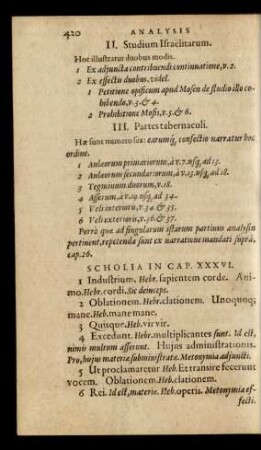 420 ANALYSIS
II. Studium Israelitarum.
Hoc illustratur duobus modis.
1 Ex adjuncta contribuendi continuatione, v.2.
2 Ex effectu duobus, videl.
1 Petitione opificum apud Mosen de studio isto cohibendo, v.3.& 4.
2 Prohibitione Mosis, v.5.& 6.
III. Partes tabernaculi.
Hæ sunt numero sex: earumq́; confectio narratur hoc
ordine.
1 Aulæorum primariorum, à v.7.usq́; ad 13.
2 Aulæorum secundariorum, à v.13.usq́; ad 18.
3 Tegminum duorum, v.18.
4 Asserum, à v.19.usq́; ad 34.
5 Veli interioris, v.34.& 35.
6 Veli exterioris, v.36.& 37.
Porrò quæ ad singularum istarum partium analysin
pertinent, repetenda sunt ex narratione mandati suprà,
cap.26.
SCHOLIA IN CAP. XXXVI.
1 Industrium. Hebr. sapientem corde. Ani-
mo. Hebr. cordi. Sic deinceps.
2 Oblationem. Hebr. elationem. Unoquoq;
mane. Hebr. mane mane.
3 Quisque. Heb. vir vir.
4 Excedunt. Hebr. multiplicantes sunt. Id est,
nimis multum afferunt. Hujus administrationis.
Pro, hujus materiæ subministratæ. Metonymia adjuncti.
5 Ut proclamaretur Heb. Et transire fecerunt
vocem. Oblationem. Heb. elationem.
6 Rei. Id est, materiæ. Heb. operis. Metonymia ef-
fecti.